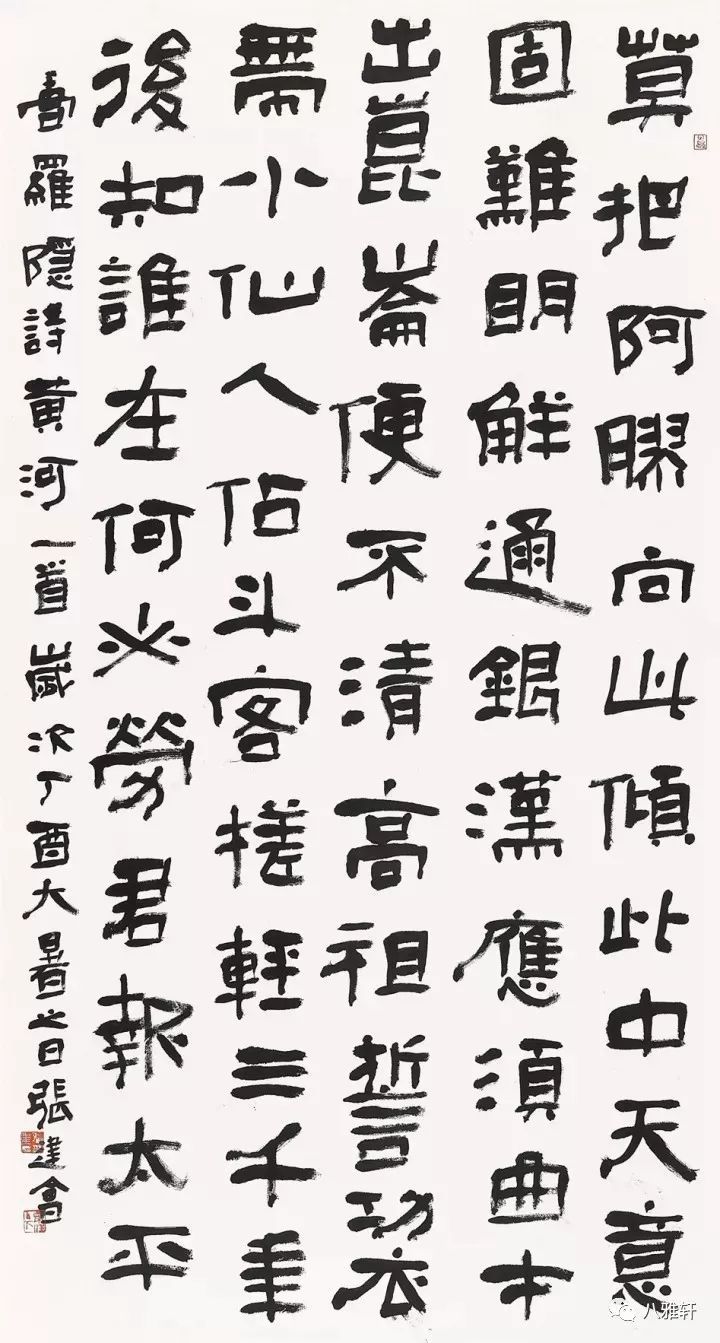 莫把阿膠向此傾此中天意
固難明解通銀漢應須曲才
出崑崙便不清高祖誓功衣
帶小仙人佔斗客槎輕三千年
後知誰在何必勞君報太平
書羅隱詩黄河一首歲次丁酉大暑之日張建會
八雅轩